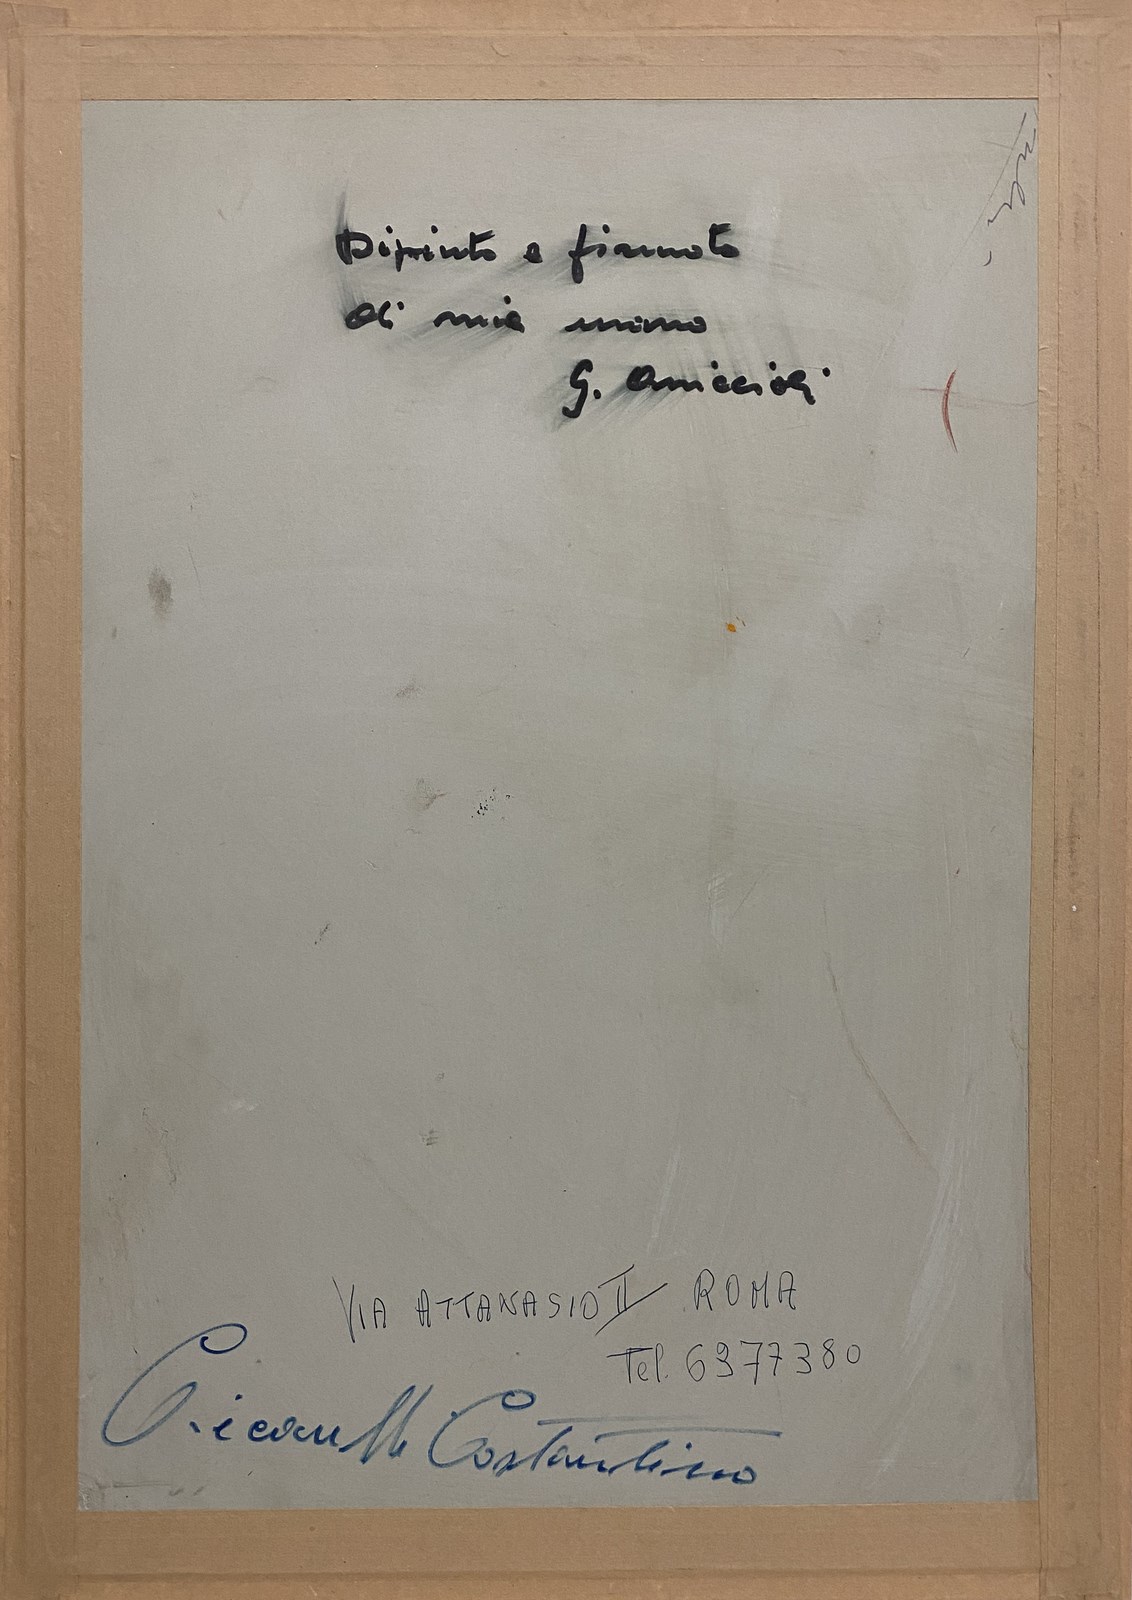 Dipinto e firmato
di mia mano
G. Omiccioli
VIA ATTANASIO II ROMA
Tel. 6377380
Costantino